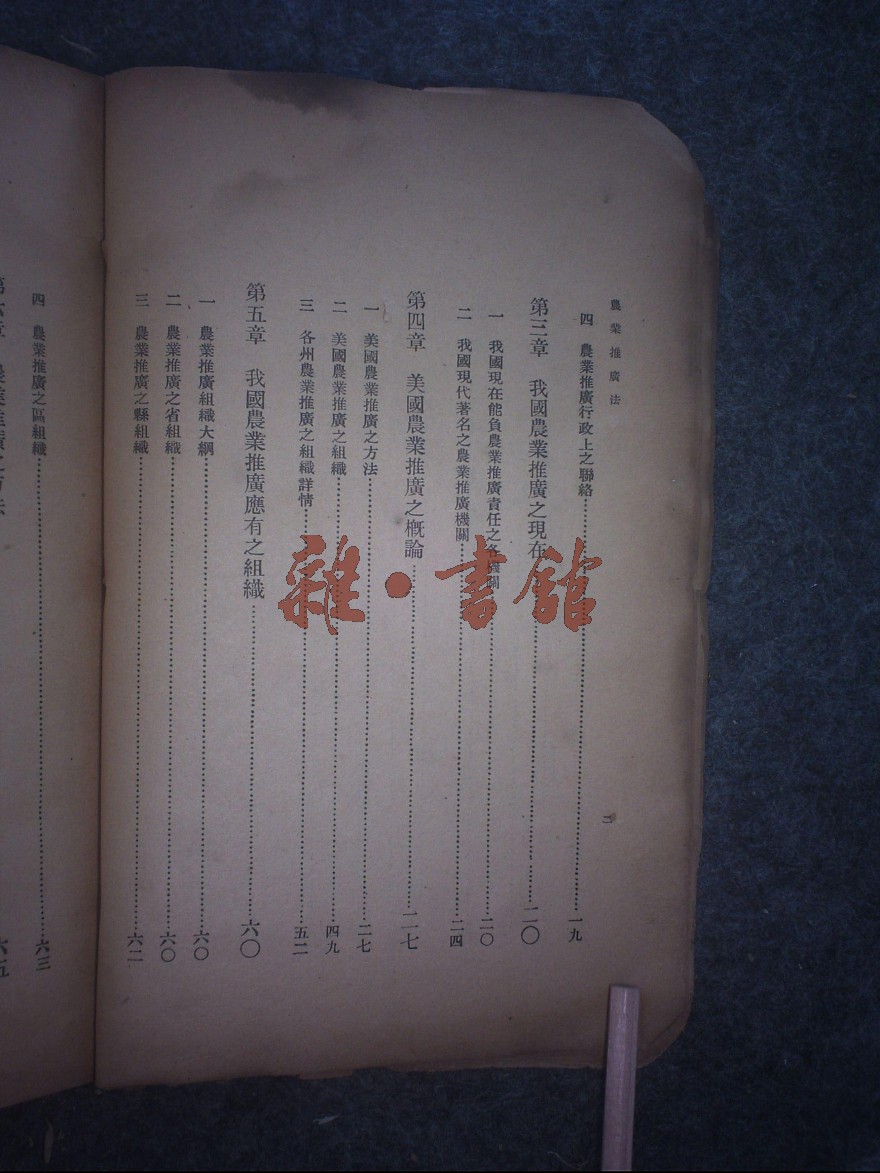 農業推廣法
四 農業推廣行政上之聯絡……一九
第三章 我國農業推廣之現在……二〇
一 我國現在能負農業推廣責任之各機關……二〇
二 我國現代著名之農業推廣機關……二四
第四章 美國農業推廣之概論……二七
一 美國農業推廣之方法……二七
二 美國農業推廣之組織……四九
三 各州農業推廣之組織詳情……五二
第五章 我國農業推廣應有之組織……六〇
一 農業推廣組織大綱……六〇
二 農業推廣之省組織……六〇
三 農業推廣之縣組織……六二
二
四 農業推廣之區組織……六三
六五
雜·書館